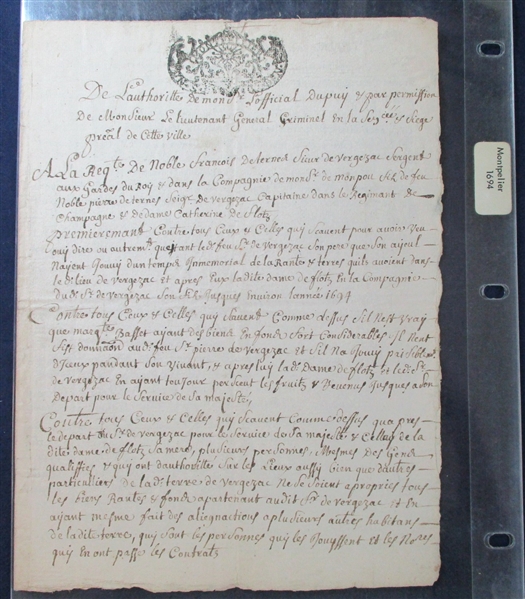 De Lauthoritte de monsr Lofficial Dupuy & par permission
De Monsieur Le Lieutenant General Criminel En la Sencee & Siege
preal de Cette Ville
A La Reqte De Noble francois De ternes Sieur de vergezac Sergent
aux Gardes du Roy & dans la Compagnie de monsr de Monpou filz de feu
Noble pierre de ternes Seigr de vergezac Capitaine dans le Regimant de
Champagne & de Dame Catherine de flotz
premieremant Contre tous Ceux & Celles quy scavent pour avoir veu
ouy dire ou autremt que tant le dt feu Sr de vergezac Son pere que Son ayeul
Nayent Jouuy dun temps Jmemorial de la Rante & terres quils avoient dans
le dt lieu de vergezac et apres Eux ladite dame de flotz En la Compagnie
du dt Sr de vergezac Son filz Jusques Environ Lannee 1694
Contre tous Ceux & Celles quy Scavent Comme dessus Sil Nest vray
que margte Basset ayant des biens En fonds fort Considerables Il nent
fist donnaon audt feu Sr pierre de vergezac et Sil Na Jouuy pzisiblemt
diceux pandant Son vivant, & apres luy la dt Dame de flotz & le dt Sr
de vergezac En ayant tousjour perseu les fruitz & Revenus Jusques a Son
Depart pour le Service de Sa majeste
Contre tous Ceux & Celles quy Scavent Comme dessus qua pres
le depart du Sr de vergezac pour le Service de Sa majeste & Celluy de la
dite dame de flotz Sa mere, plusieurs personnes Mesmes des Gens
qualiffies & quy ont dauthoritte Sur les Lieux aussy bien que dautres
particuliers de la dt terre de vergezac Ne Se Soient apropries tous
les biens Rantes & fonds apartenant audit Sr de vergezac et En
ayant mesme fait des aliegnactions a plusieurs autres habitans
de ladite terre, quy Sont les personnes quy les Jouyssent et les Nores
quy En ont passe les Contratz
Montpelier
1694